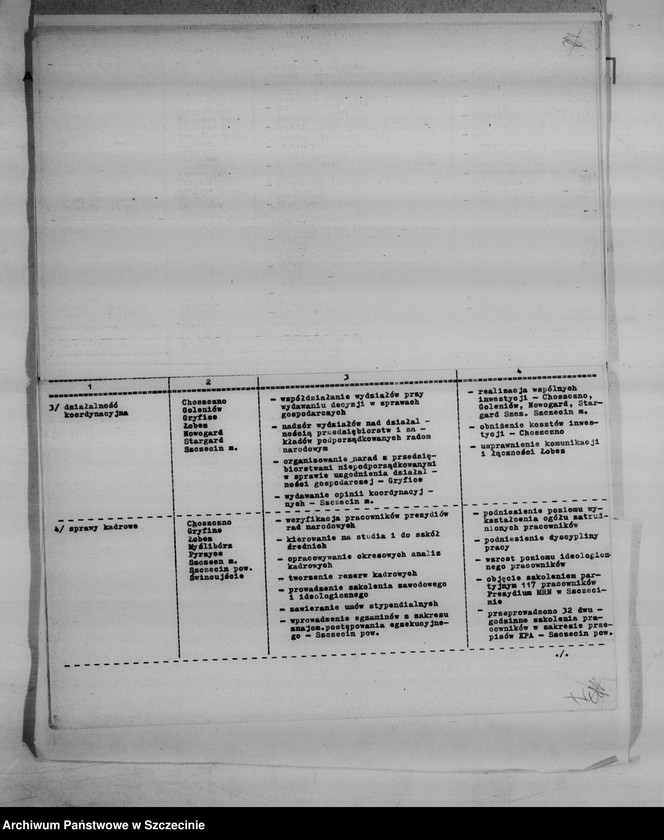 1
2
3
4
3/ działalność
koordynacyjna
Choszczno
Goleniów
Gryfice
Łobez
Nowogard
Stargard
Szczecin m.
- współdziałanie wydziałów przy
wydawaniu decyzji w sprawach
gospodarczych
- nadzór wydziałów nad działal -
nością przedsiębiorstw i za -
kładów podporządkowanych radom
narodowym
- organizowanie narad z przedsię-
biorstwami niepodporządkowanymi
w sprawie uzgodnienia działal -
ności gospodarczej - Gryfice
- wydawanie opinii koordynacyj -
nych - Szczecin m.
- realizacja wspólnych
inwestycji - Choszczno,
Goleniów, Nowogard, Star-
gard Szcz. Szczecin m.
- obniżenie kosztów inwes-
tycji - Choszczno
- usprawnienie komunikacji
i łączności Łobez
4/ sprawy kadrowe
Choszczno
Gryfino
Łobez
Myślibórz
Pyrzyce
Szczecin m.
Szczecin pow.
Świnoujście
- weryfikacja pracowników prezydiów
rad narodowych
- kierowanie na studia i do szkół
średnich
- opracowywanie okresowych analiz
kadrowych
- tworzenie rezerw kadrowych
- prowadzenie szkolenia zawodowego
i ideologicznego
- zawieranie umów stypendialnych
- wprowadzenie egzaminów z zakresu
znajom.postępowania egzekucyjne-
go - Szczecin pow.
- podniesienie poziomu wy-
kształcenia ogółu zatrud-
nionych pracowników
- podniesienie dyscypliny
pracy
- wzrost poziomu ideologicz-
nego pracowników
- objęcie szkoleniem par-
tyjnym 117 pracowników
Prezydium MRN w Szczeci-
nie
- przeprowadzono 32 dwu -
godzinne szkolenia pra-
cowników w zakresie prze-
pisów KPA - Szczecin pow.
./.
Archiwum Państwowe w Szczecinie